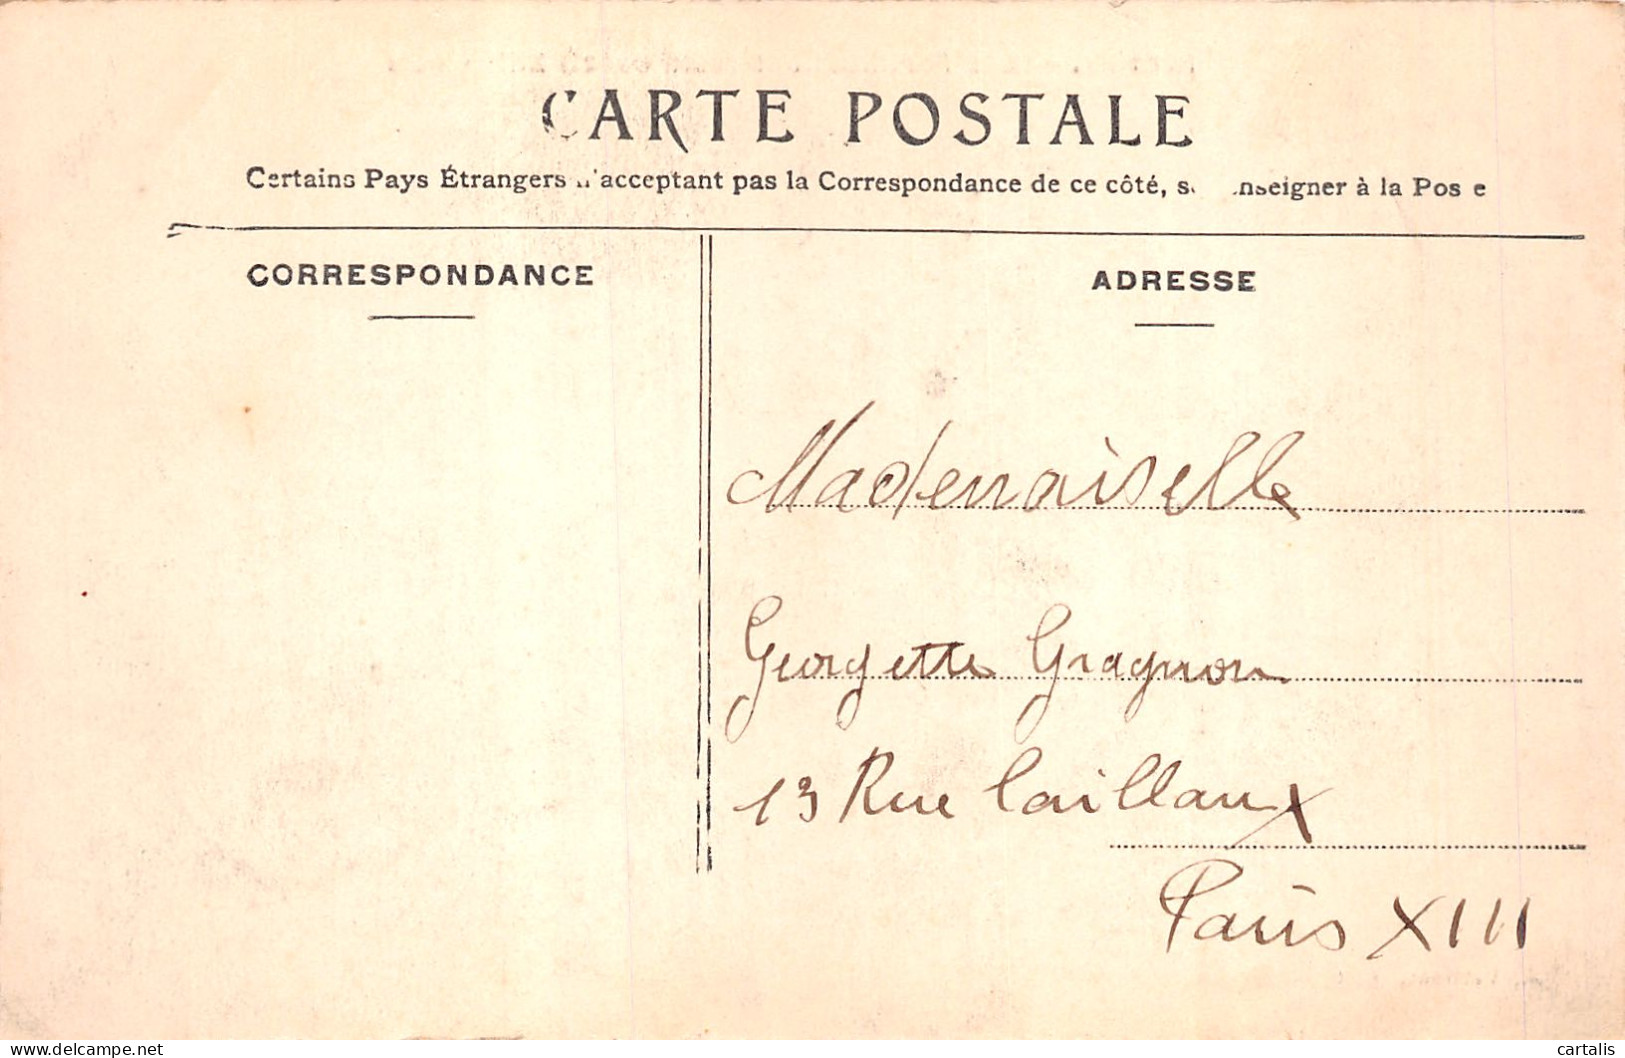 CARTE POSTALE
Certains Pays Étrangers n'acceptant pas la Correspondance de ce côté, se renseigner à la Poste
CORRESPONDANCE
ADRESSE
Mademoiselle
Georgette Gragnon
13 Rue Caillaux
Paris XIII
www.delcampe.net
cartalis